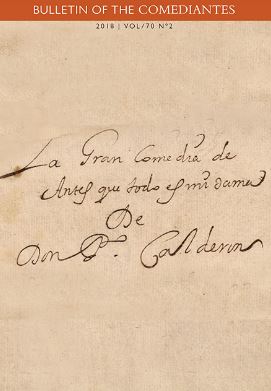 BULLETIN OF THE COMEDIANTES
2018 | VOL/70 Nº2
La Gran Comedia de
Antes que todo es mi dama
De
Don P.º Calderon